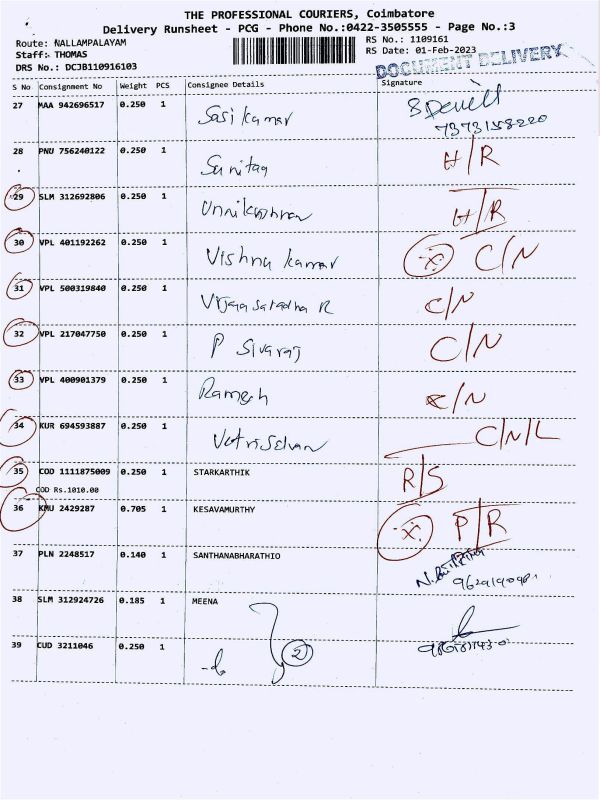 THE PROFESSIONAL COURIERS, Coimbatore
Delivery Runsheet - PCG - Phone No.:0422-3505555 - Page No.:3
Route: NALLAMPALAYAM RS No.: 1109161
Staff: THOMAS RS Date: 01-Feb-2023
DRS No.: DCJB110916103 DOCUMENT DELIVERY
S No Consignment No Weight PCS Consignee Details Signature
27 MAA 942696517 0.250 1 Sasi kumar
7373158220
28 PNU 756240122 0.250 1 H/R
29 SLM 312692806 0.250 1 Unnikrishnan H/R
30 VPL 401192262 0.250 1 Vishnu kumar C/N
31 VPL 500319840 0.250 1 C/N
32 VPL 217047750 0.250 1 P Sivaraj C/N
33 VPL 400901379 0.250 1 Ramesh C/N
34 KUR 694593887 0.250 1 Vetriselvan C/N/L
35 COD 1111875009 0.250 1 STARKARTHIK R/S
COD Rs.1010.00
36 KMU 2429287 0.705 1 KESAVAMURTHY P/R
37 PLN 2248517 0.140 1 SANTHANABHARATHIO
38 SLM 312924726 0.185 1 MEENA
39 CUD 3211046 0.250 1 2